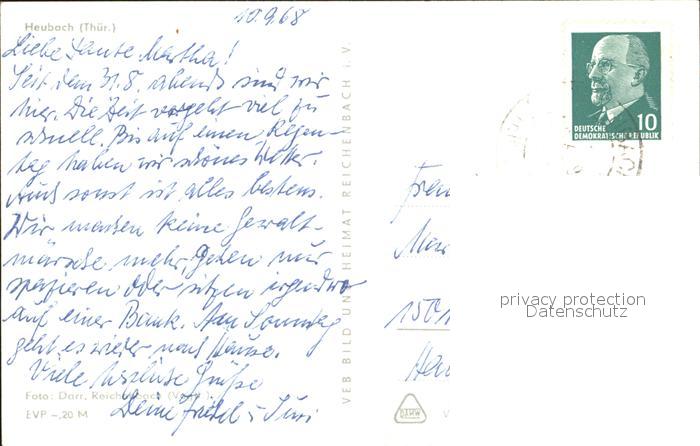 Heubach (Thür.)
10.9.68
Liebe Tante Martha!
Seit dem 31.8. abends sind wir
hier. Die Zeit vergeht viel zu
schnell. Bis auf einen Regen-
tag haben wir schönes Wetter.
Auch sonst ist alles bestens.
Wir machen keine Gewalt-
märsche mehr, gehen nur
spazieren oder sitzen irgendwo
auf einer Bank. Am Sonntag
geht es wieder nach Hause.
Viele herzliche Grüße
Deine Friedel u.
Foto: Darr, Reichenbach (Vogtl.)
EVP -,20 M
VEB BILD UND HEIMAT REICHENBACH i. V.
10
DEUTSCHE
DEMOKRATISCHE REPUBLIK
Frau
Mar
1501
privacy protection
Datenschutz
DAMW
V